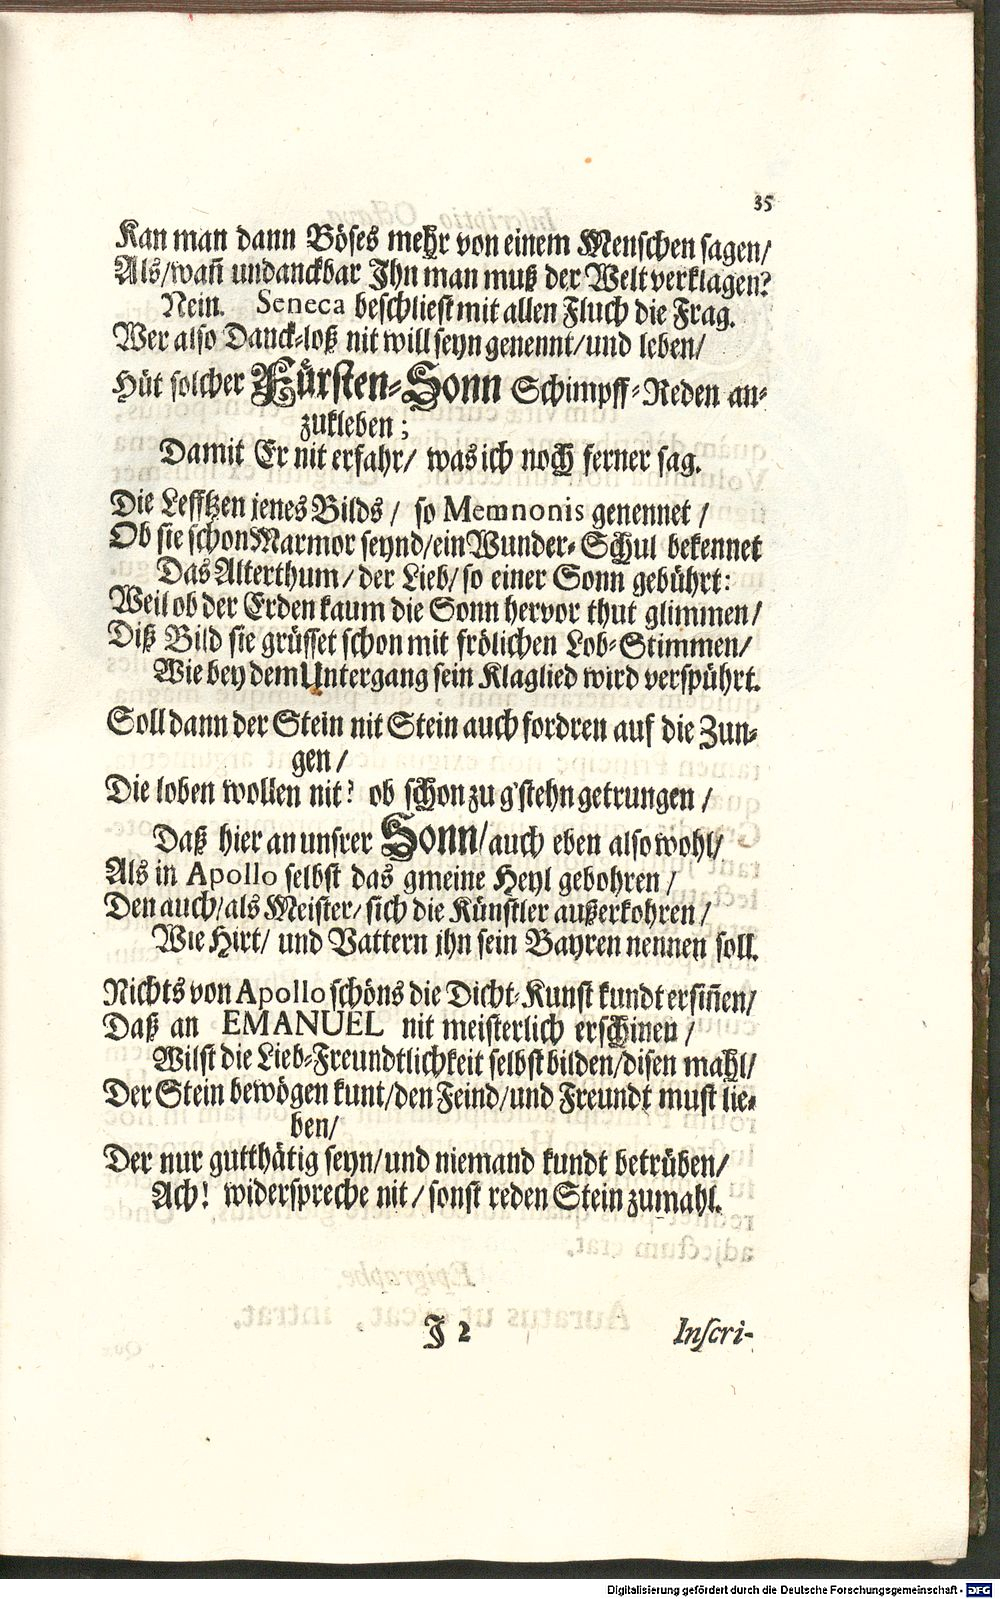 35
Kan man dann Böses mehr von einem Menschen sagen/
Als/wañ undanckbar Ihn man muß der Welt verklagen?
Nein. Seneca beschliest mit allen Fluch die Frag.
Wer also Danck-loß nit will seyn genennt/und leben/
Hüt solcher Fürsten-Sonn Schimpff-Reden an-
zukleben;
Damit Er nit erfahr/ was ich noch ferner sag.
Die Lefftzen jenes Bilds / so Memnonis genennet /
Ob sie schon Marmor seynd/ein Wunder-Schul bekennet
Das Alterthum/ der Lieb/ so einer Sonn gebührt:
Weil ob der Erden kaum die Sonn hervor thut glimmen/
Diß Bild sie grüsset schon mit frölichen Lob-Stimmen/
Wie bey dem Untergang sein Klaglied wird verspührt.
Soll dann der Stein nit Stein auch fordren auf die Zun-
gen /
Die loben wollen nit? ob schon zu g'stehn getrungen /
Daß hier an unsrer Sonn/auch eben also wohl/
Als in Apollo selbst das gmeine Heyl gebohren /
Den auch/als Meister/ sich die Künstler außerkohren /
Wie Hirt/ und Vattern ihn sein Bayren nennen soll.
Nichts von Apollo schöns die Dicht-Kunst kundt ersiñen/
Daß an EMANUEL nit meisterlich erschinen /
Wilst die Lieb-Freundtlichkeit selbst bilden/disen mahl/
Der Stein bewögen kunt/den Feind/und Freundt must lie-
ben/
Der nur gutthätig seyn/und niemand kundt betrüben/
Ach! widerspreche nit/ sonst reden Stein zumahl.
J 2
Inscri-
Digitalisierung gefördert durch die Deutsche Forschungsgemeinschaft - DFG